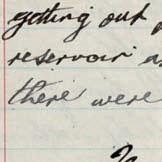 getting out
reservoir
there were